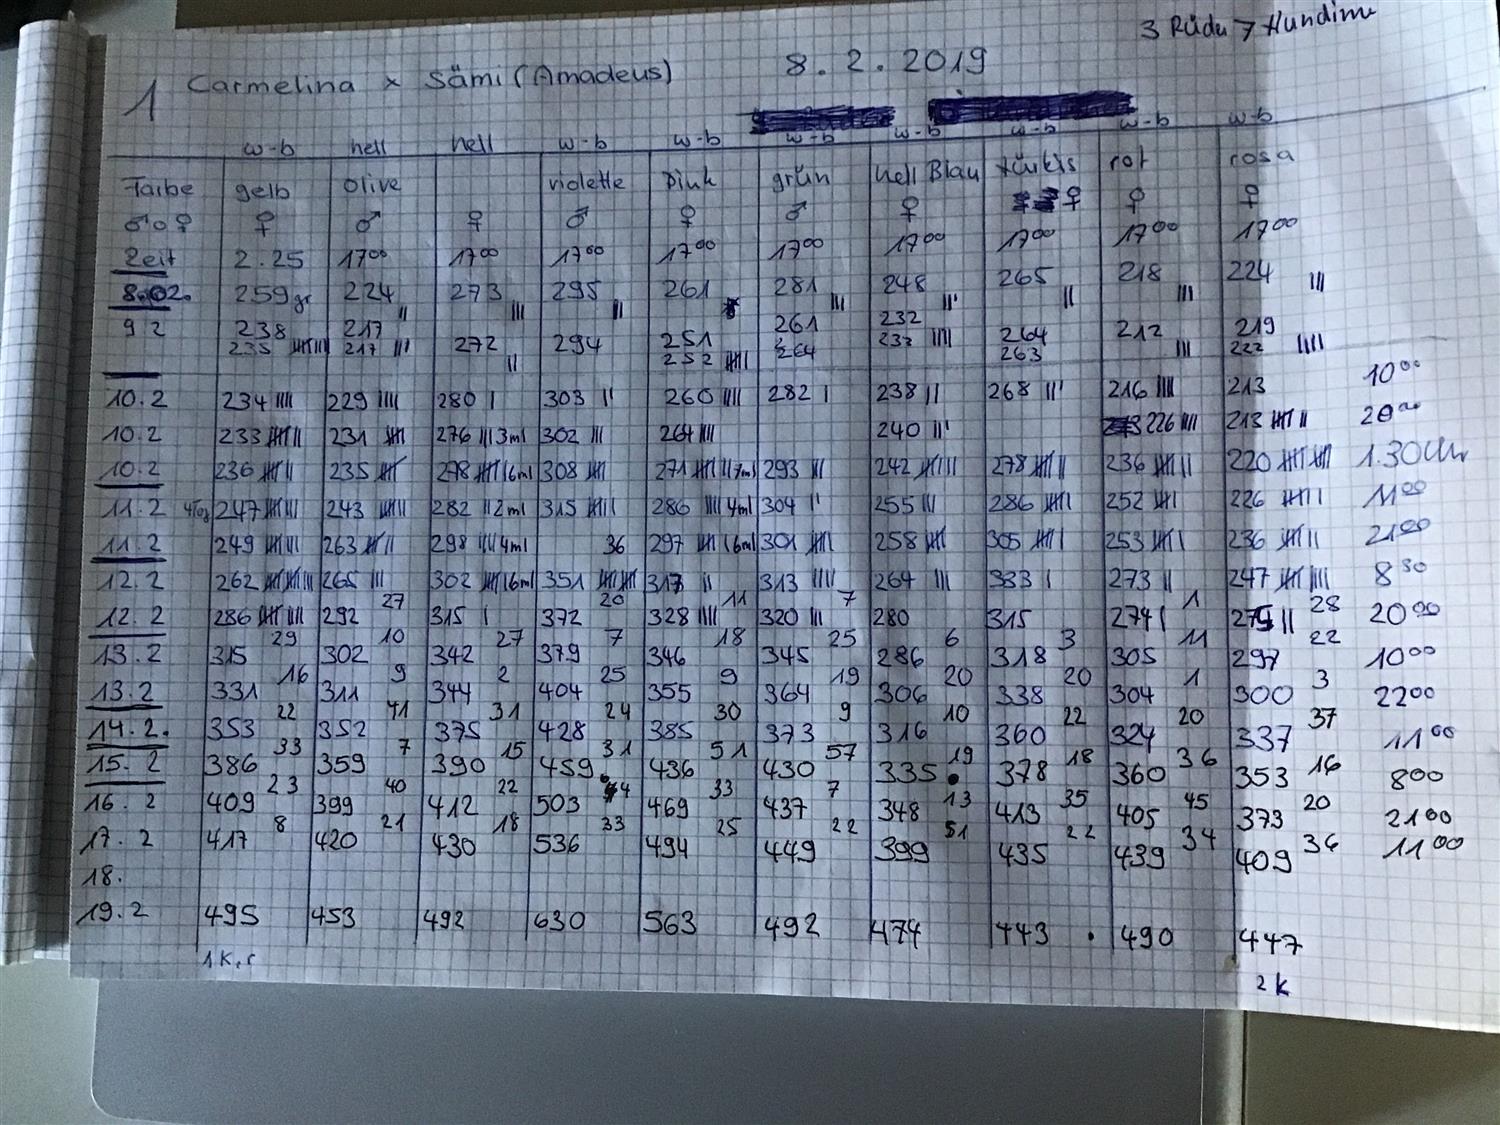 3 Rüdu 7 Hundinn
1 Carmelina x Sämi (Amadeus) 8.2.2019
w-b hell hell w-b w-b w-b w-b w-b w-b w-b
Farbe gelb olive violette Pink grün hell Blau türkis rot rosa
♂ o ♀ ♀ ♂ ♀ ♂ ♀ ♂ ♀ ♀ ♀ ♀
Zeit 2.25 17⁰⁰ 17⁰⁰ 17⁰⁰ 17⁰⁰ 17⁰⁰ 17⁰⁰ 17⁰⁰ 17⁰⁰ 17⁰⁰
8.02. 259gr 224 || 273 ||| 295 || 261 281 ||| 248 ||| 265 || 218 ||| 224 |||
9 2 238 217 261 232 219
235 217 ||| 272 || 294 251 264 237 |||| 264 212 ||| 222 ||||
252 263
10.2 234 |||| 229 |||| 280 | 303 || 260 |||| 282 | 238 || 268 ||| 216 |||| 213 10⁰⁰
10.2 233 231 276 ||| 3ml 302 ||| 264 |||| 240 ||| 226 |||| 213 20⁰⁰
10.2 236 235 278 6ml 308 271 7ml 293 ||| 242 278 236 220 1.30 Uhr
11.2 4Tag 247 243 282 || 2ml 315 286 |||| 4ml 304 || 255 ||| 286 252 226 11⁰⁰
11.2 249 263 298 4ml 36 297 6ml 301 258 305 253 236 21⁰⁰
12.2 262 265 ||| 302 6ml 351 317 || 313 |||| 264 ||| 333 | 273 || 247 8³⁰
12.2 286 292 27 315 | 372 20 328 |||| 11 320 ||| 7 280 315 274 | 1 275 || 28 20⁰⁰
13.2 315 29 302 10 342 27 379 7 346 18 345 25 286 6 318 3 305 11 297 22 10⁰⁰
13.2 331 16 311 9 344 2 404 25 355 9 364 19 306 20 338 20 304 1 300 3 22⁰⁰
14.2. 353 22 352 41 375 31 428 24 385 30 373 9 316 10 360 22 324 20 337 37 11⁰⁰
15.2 386 33 359 7 390 15 459 31 436 51 430 57 335 19 378 18 360 36 353 16 8⁰⁰
16.2 409 23 399 40 412 22 503 44 469 33 437 7 348 13 413 35 405 45 373 20 21⁰⁰
17.2 417 8 420 21 430 18 536 33 494 25 449 22 399 51 435 22 439 34 409 36 11⁰⁰
18.
19.2 495 453 492 630 563 492 474 443 . 490 447
1 K.r
2 K